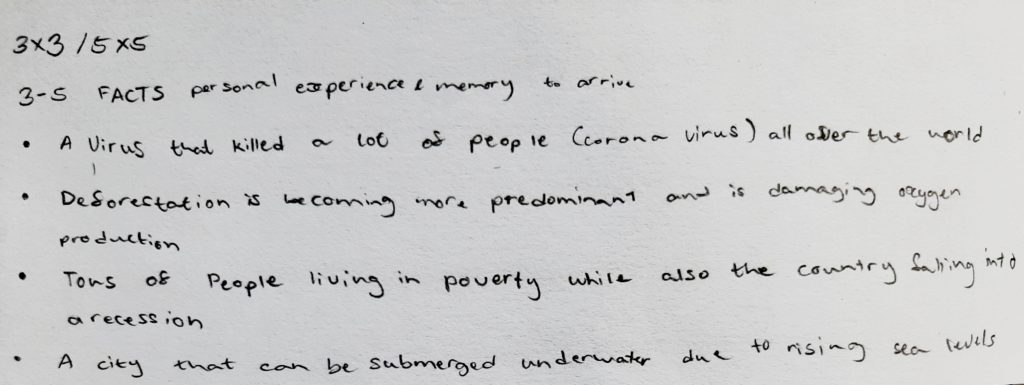 3x3 / 5x5
3-5 FACTS personal experience & memory to arrive
• A Virus that killed a lot of people (corona virus) all over the world
• Deforestation is becoming more predominant and is damaging oxygen
production
• Tons of People living in poverty while also the country falling into
a recession
• A city that can be submerged underwater due to rising sea levels